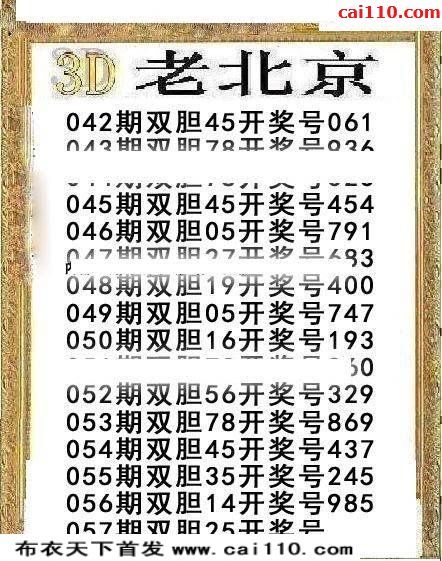 cai110.com
3D 老北京
042期双胆45开奖号061
043期双胆78开奖号936
045期双胆45开奖号454
046期双胆05开奖号791
047期双胆27开奖号683
048期双胆19开奖号400
049期双胆05开奖号747
050期双胆16开奖号193
052期双胆56开奖号329
053期双胆78开奖号869
054期双胆45开奖号437
055期双胆35开奖号245
056期双胆14开奖号985
057期双胆25开奖号
布衣天下首发 www.cai110.com